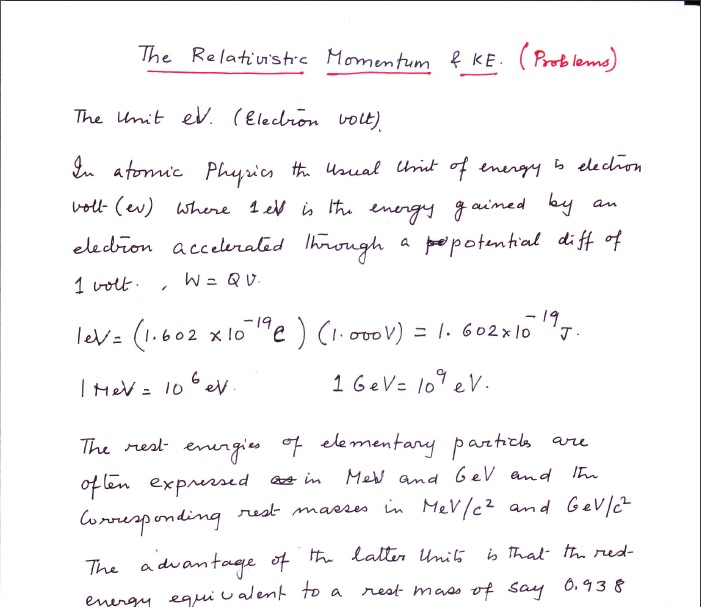 The Relativistic Momentum & KE. (Problems)
The Unit eV. (Electron volt)
In atomic Physics the usual Unit of energy is electron
volt (ev) where 1 eV is the energy gained by an
electron accelerated through a potential diff of
1 volt. , W = QV.
1eV = (1.602 × 10⁻¹⁹C) (1.000V) = 1.602×10⁻¹⁹J.
1 MeV = 10⁶ eV. 1 GeV = 10⁹ eV.
The rest energies of elementary particles are
often expressed in MeV and GeV and the
Corresponding rest masses in MeV/c² and GeV/c²
The advantage of the latter Units is that the rest
energy equivalent to a rest mass of say 0.938